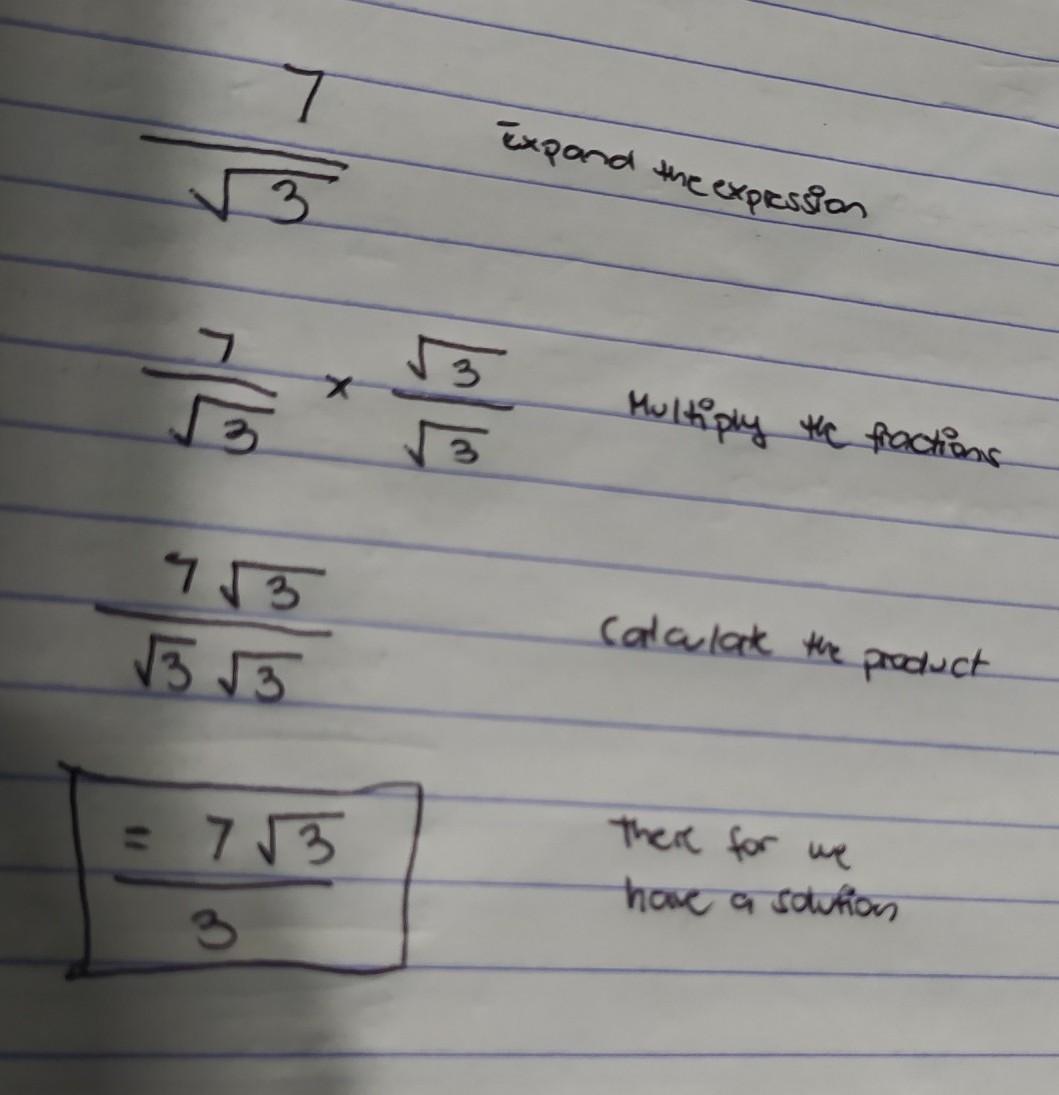 7
√3 Expand the expression
7/√3 × √3/√3 Multiply the fractions
7√3
√3 √3 Calculate the product
= 7√3
3
There for we
have a solution